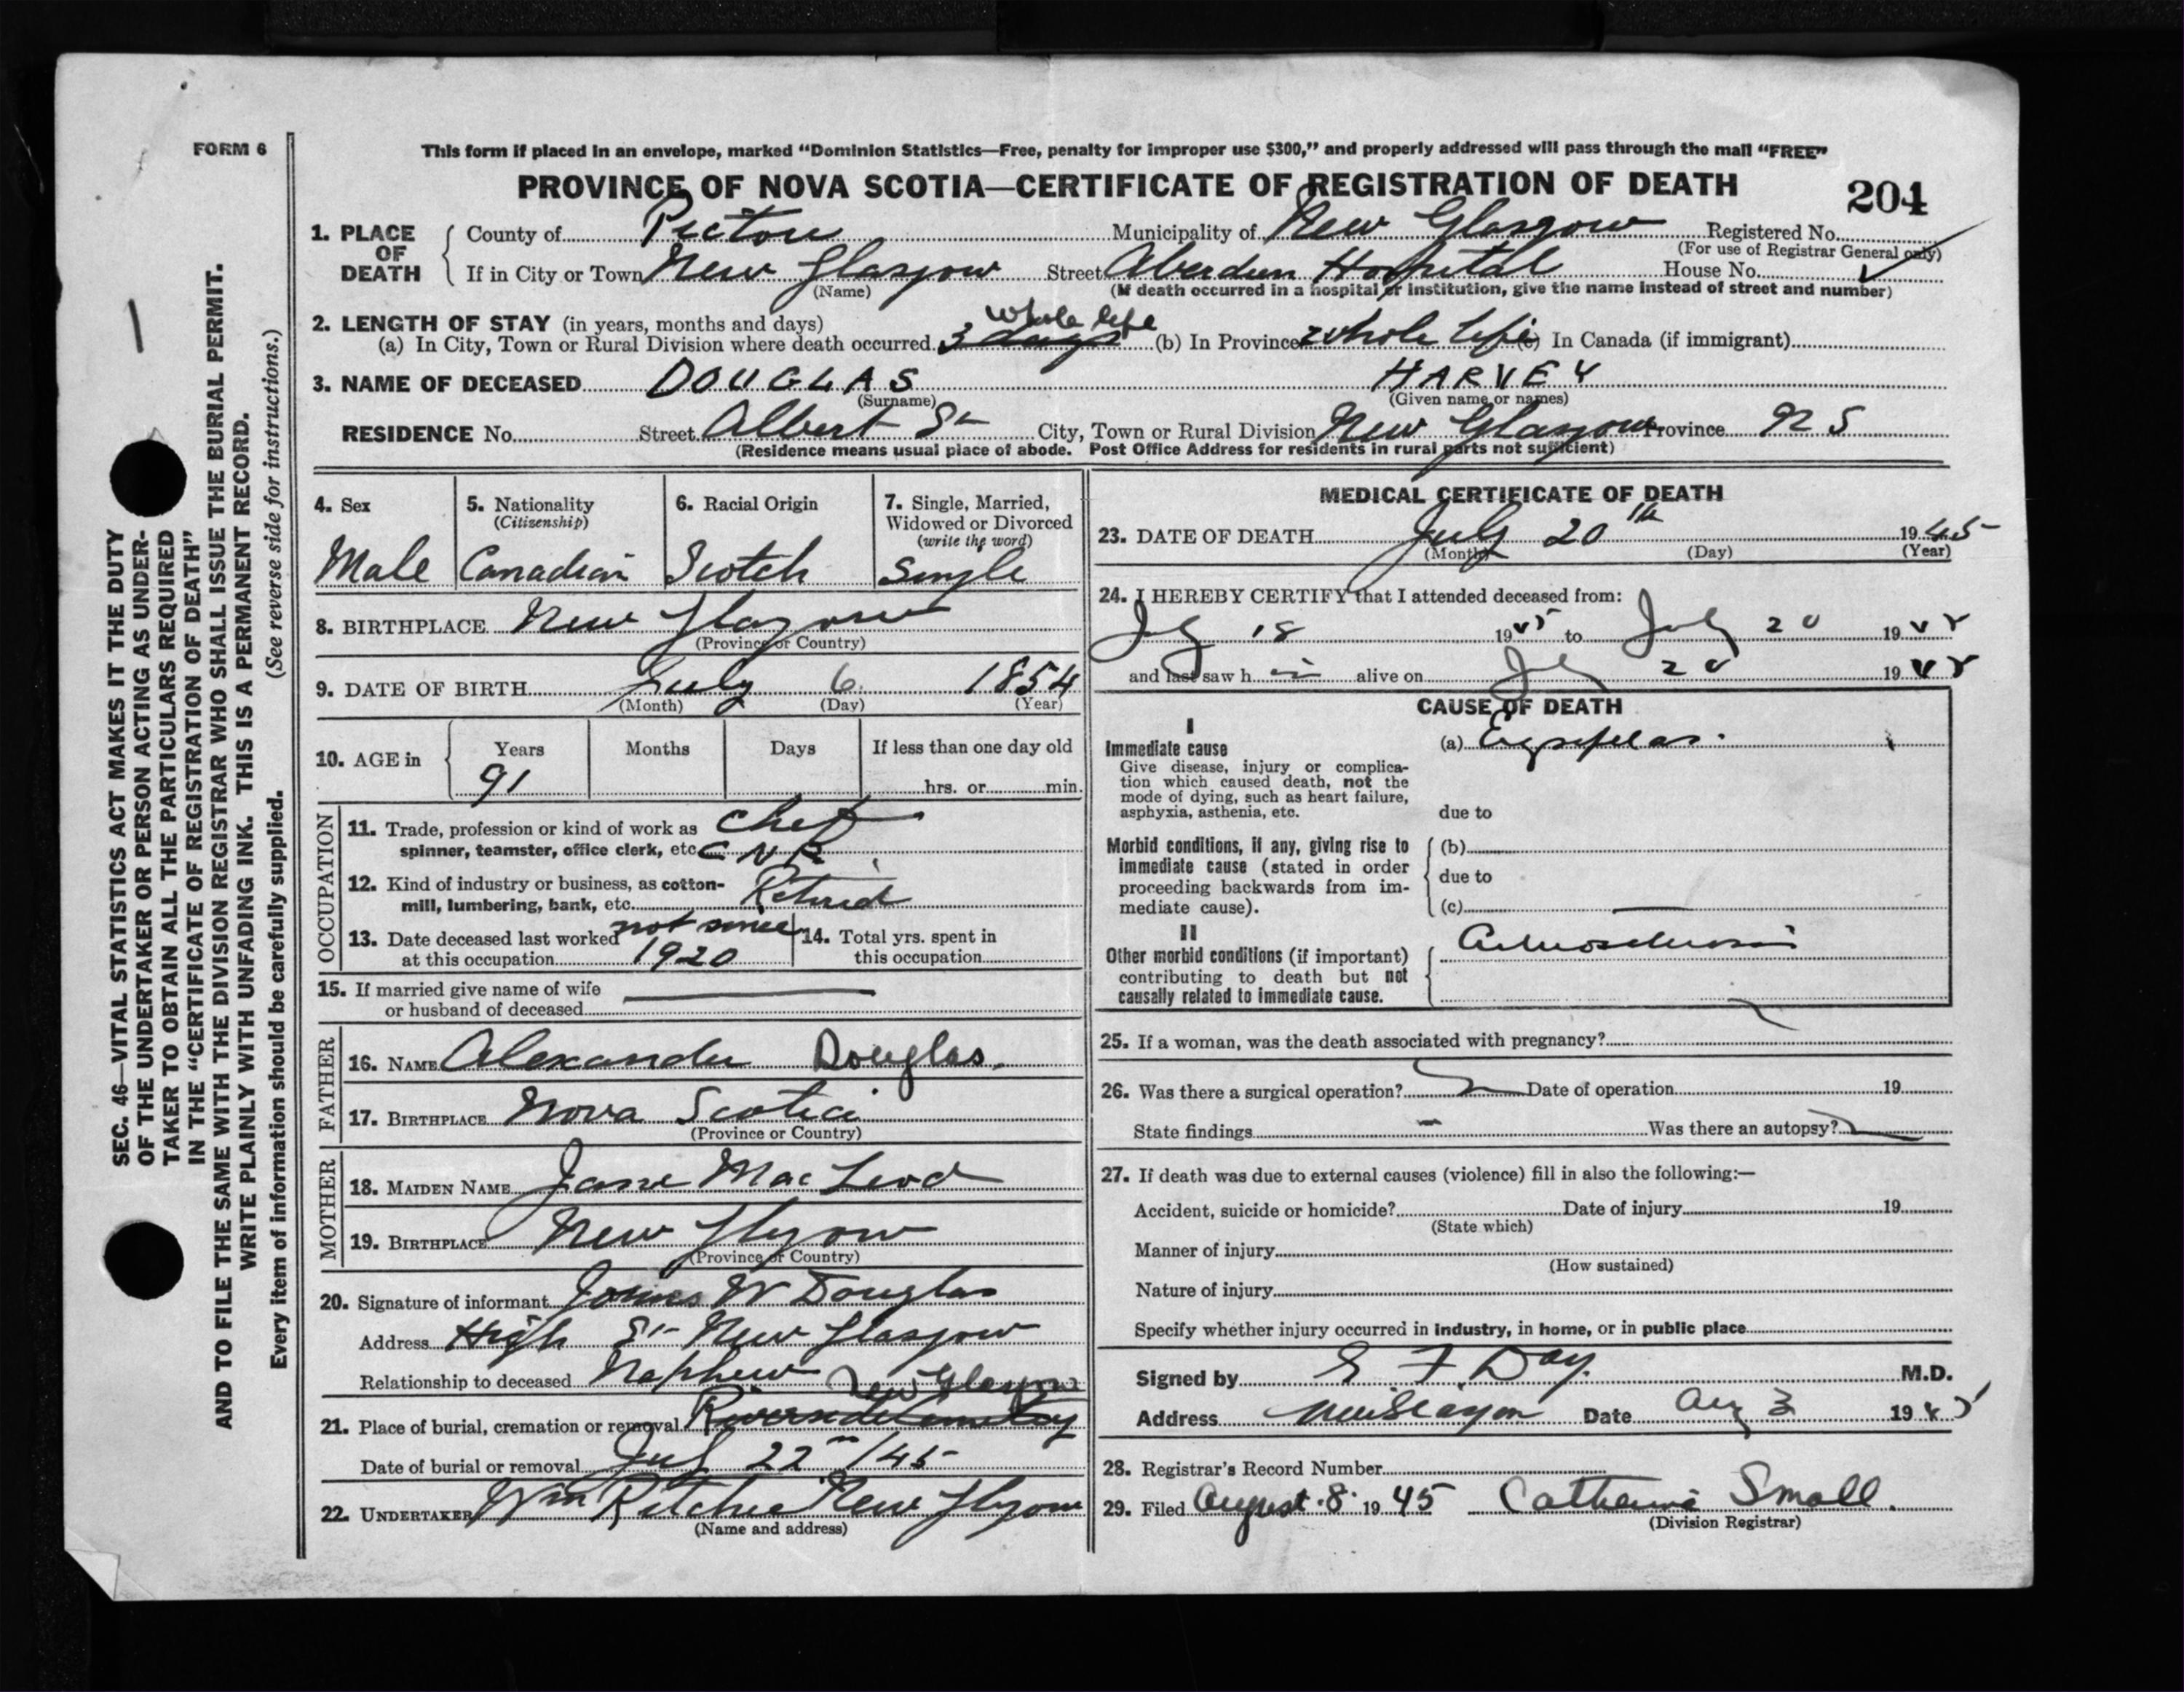 FORM 6
This form if placed in an envelope, marked “Dominion Statistics—Free, penalty for improper use $300,” and properly addressed will pass through the mail “FREE”
PROVINCE OF NOVA SCOTIA—CERTIFICATE OF REGISTRATION OF DEATH
204
1. PLACE OF DEATH
County of Pictou Municipality of New Glasgow Registered No.
(For use of Registrar General only)
If in City or Town New Glasgow Street Aberdeen Hospital House No.
(Name) (If death occurred in a hospital or institution, give the name instead of street and number)
2. LENGTH OF STAY (in years, months and days) whole life
(a) In City, Town or Rural Division where death occurred 3 days (b) In Province whole life (c) In Canada (if immigrant)
3. NAME OF DECEASED DOUGLAS HARVEY
(Surname) (Given name or names)
RESIDENCE No. Street Albert St City, Town or Rural Division New Glasgow Province N S
(Residence means usual place of abode. Post Office Address for residents in rural parts not sufficient)
4. Sex
Male
5. Nationality
(Citizenship)
Canadian
6. Racial Origin
Scotch
7. Single, Married,
Widowed or Divorced
(write the word)
Single
8. BIRTHPLACE New Glasgow
(Province or Country)
9. DATE OF BIRTH July 6 1854
(Month) (Day) (Year)
10. AGE in Years Months Days If less than one day old
91 hrs. or min.
OCCUPATION
11. Trade, profession or kind of work as Chef
spinner, teamster, office clerk, etc. C N R
12. Kind of industry or business, as cotton-
mill, lumbering, bank, etc. Retired
13. Date deceased last worked not since
at this occupation 1920
14. Total yrs. spent in
this occupation
15. If married give name of wife
or husband of deceased
FATHER
16. NAME Alexander Douglas.
17. BIRTHPLACE Nova Scotia
(Province or Country)
MOTHER
18. MAIDEN NAME Jane MacLeod
19. BIRTHPLACE New Glasgow
(Province or Country)
20. Signature of informant W Douglas
Address High St New Glasgow
Relationship to deceased Nephew
New Glasgow
21. Place of burial, cremation or removal Riverside Cemetery
Date of burial or removal July 22nd /45
22. UNDERTAKER Wm Ritchie New Glasgow
(Name and address)
MEDICAL CERTIFICATE OF DEATH
23. DATE OF DEATH July 20th 1945
(Month) (Day) (Year)
24. I HEREBY CERTIFY that I attended deceased from:
July 18 1945 to July 20 1945
and last saw h im alive on July 20 1945
CAUSE OF DEATH
I
Immediate cause
Give disease, injury or complica-
tion which caused death, not the
mode of dying, such as heart failure,
asphyxia, asthenia, etc.
(a) Erysipelas.
due to
Morbid conditions, if any, giving rise to
immediate cause (stated in order
proceeding backwards from im-
mediate cause).
(b)
due to
(c)
II
Other morbid conditions (if important)
contributing to death but not
causally related to immediate cause.
Arteriosclerosis
25. If a woman, was the death associated with pregnancy?
26. Was there a surgical operation? Date of operation 19
State findings Was there an autopsy?
27. If death was due to external causes (violence) fill in also the following:—
Accident, suicide or homicide? Date of injury 19
(State which)
Manner of injury
(How sustained)
Nature of injury
Specify whether injury occurred in industry, in home, or in public place
Signed by F. Day. M.D.
Address New Glasgow Date Aug 3 1945
28. Registrar's Record Number
29. Filed August 8 1945 Catherine Small.
(Division Registrar)
SEC. 46—VITAL STATISTICS ACT MAKES IT THE DUTY
OF THE UNDERTAKER OR PERSON ACTING AS UNDER-
TAKER TO OBTAIN ALL THE PARTICULARS REQUIRED
IN THE “CERTIFICATE OF REGISTRATION OF DEATH”
AND TO FILE THE SAME WITH THE DIVISION REGISTRAR WHO SHALL ISSUE THE BURIAL PERMIT.
WRITE PLAINLY WITH UNFADING INK. THIS IS A PERMANENT RECORD.
Every item of information should be carefully supplied. (See reverse side for instructions.)